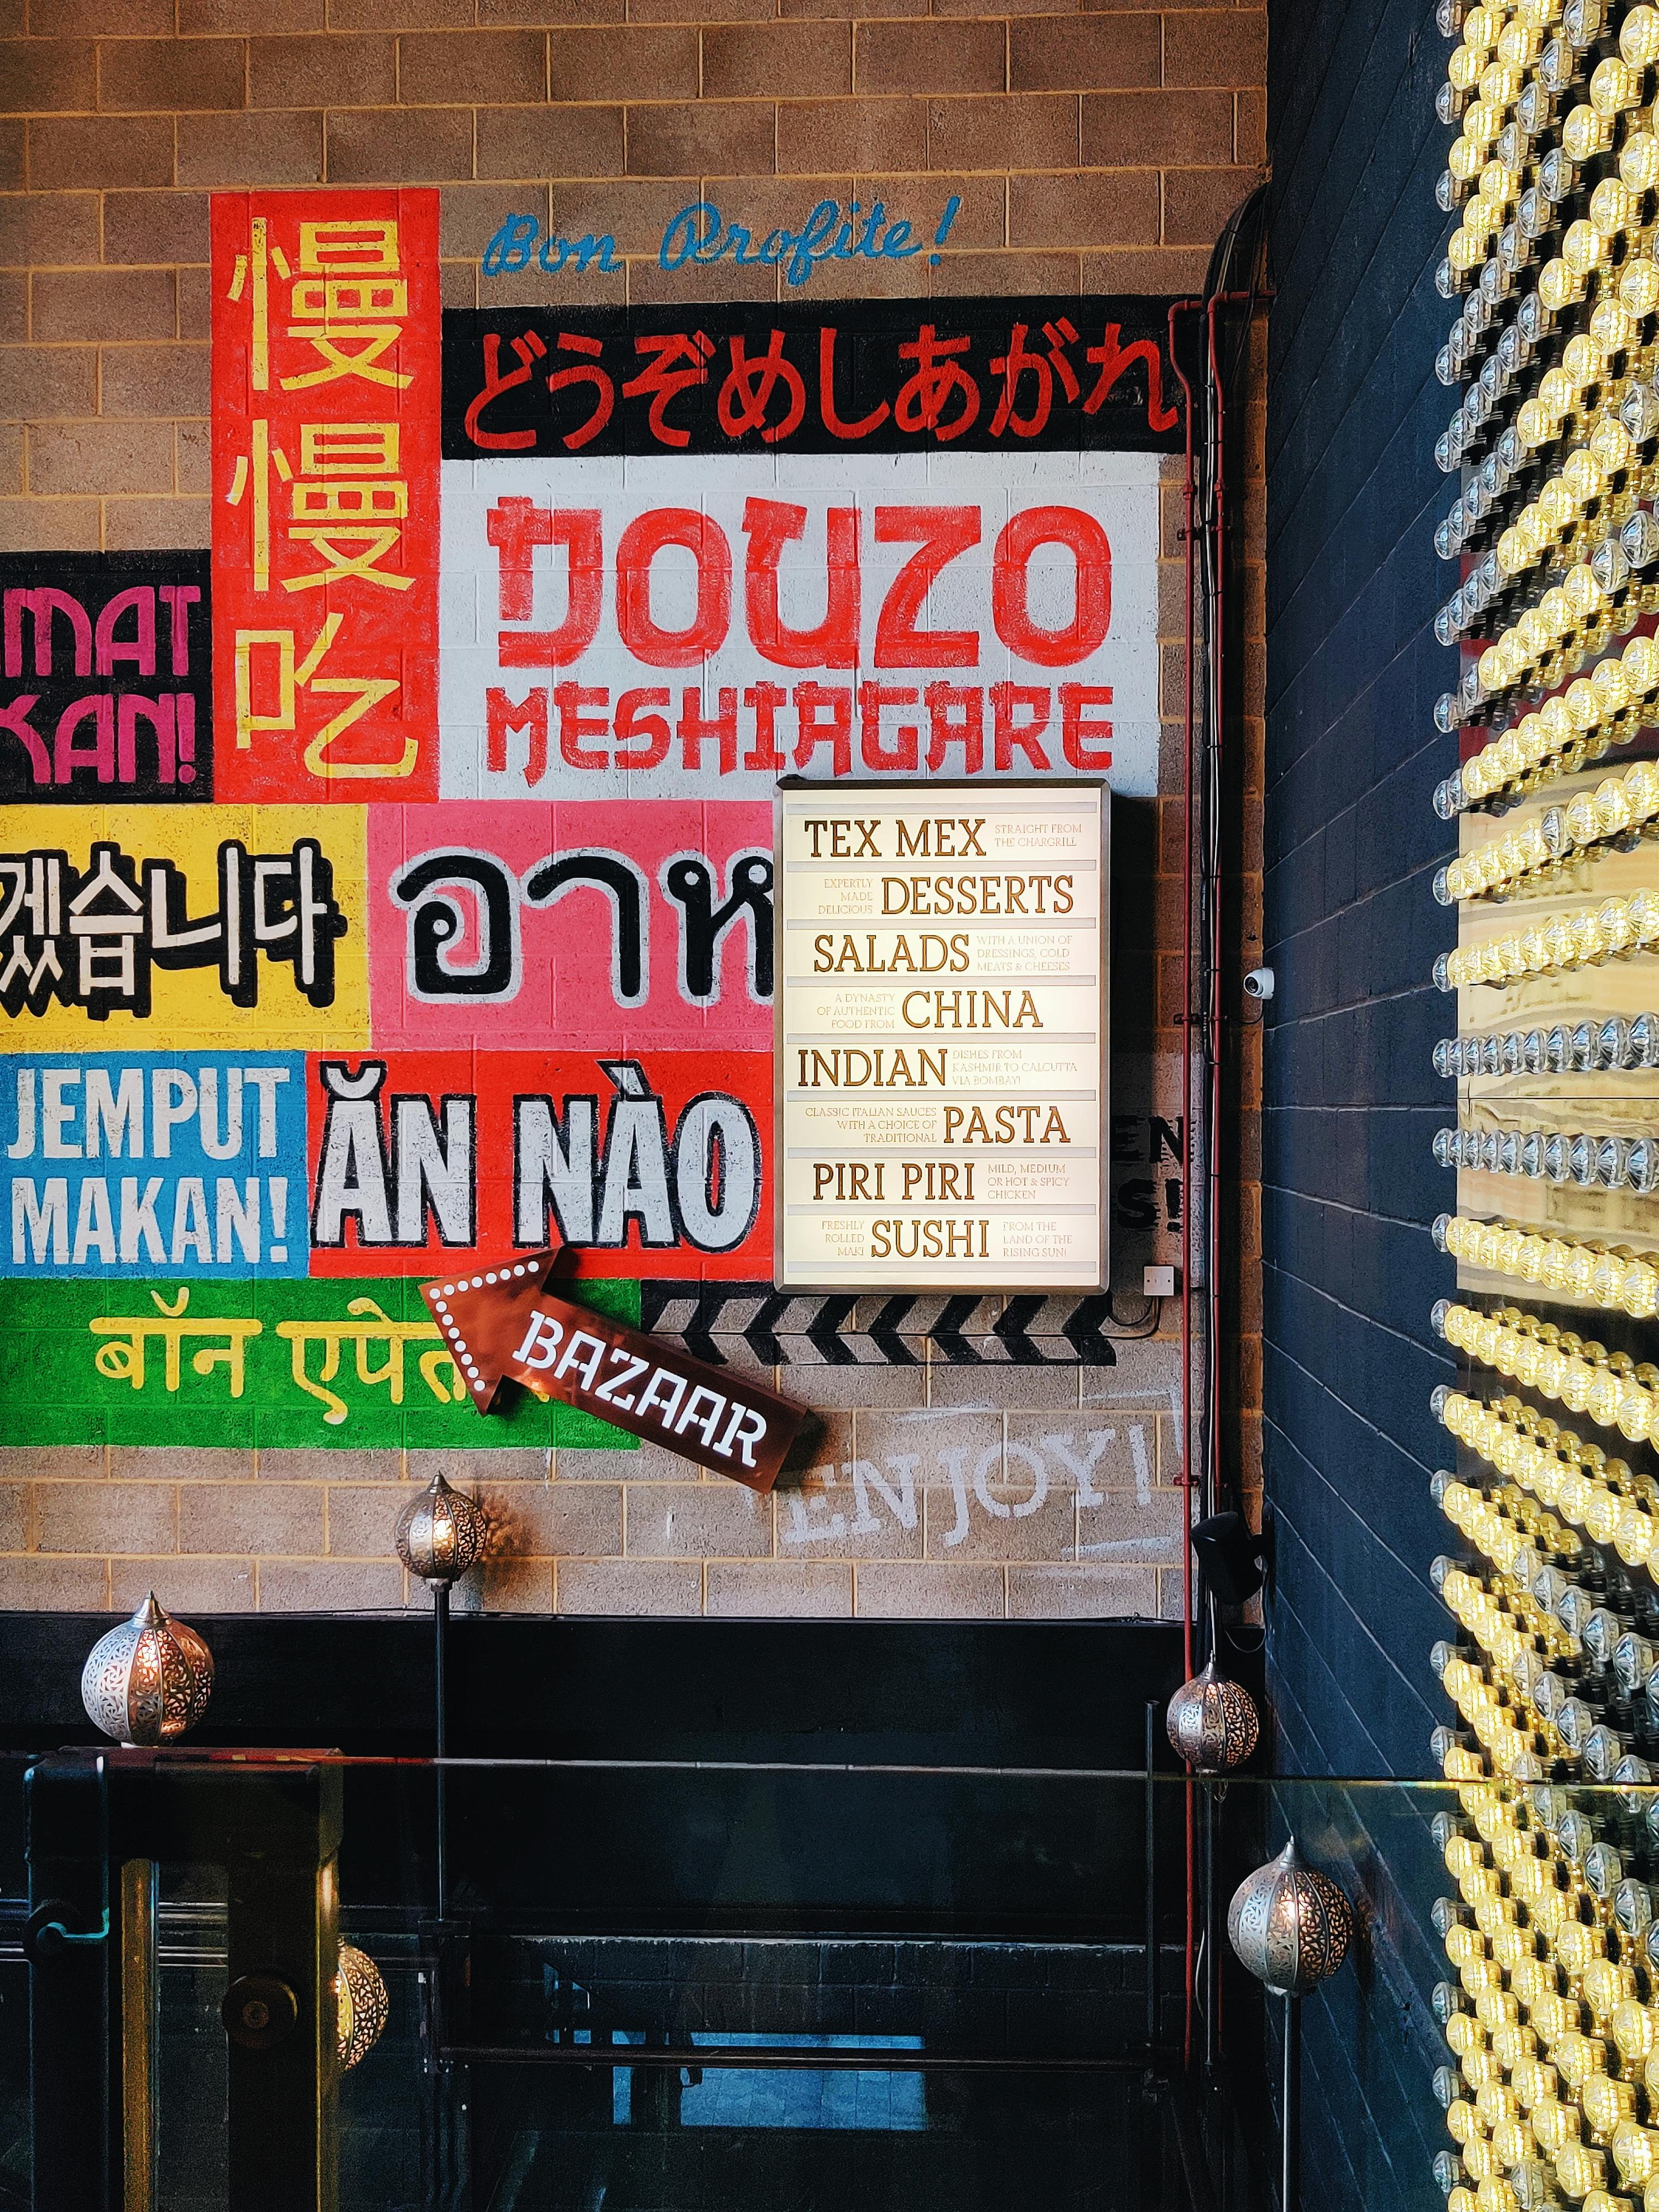 Bon Profite!
慢慢吃
どうぞめしあがれ
DOUZO
MESHIAGARE
MAT
KAN!
겠습니다
อาห
JEMPUT
MAKAN!
ĂN NÀO
बॉन एपेत
BAZAAR
TEX MEX STRAIGHT FROM THE CHARGRILL
EXPERTLY MADE DELICIOUS DESSERTS
SALADS WITH A UNION OF DRESSINGS, COLD MEATS & CHEESES
A DYNASTY OF AUTHENTIC FOOD FROM CHINA
INDIAN DISHES FROM KASHMIR TO CALCUTTA VIA BOMBAY!
CLASSIC ITALIAN SAUCES WITH A CHOICE OF TRADITIONAL PASTA
PIRI PIRI MILD, MEDIUM OR HOT & SPICY CHICKEN
FRESHLY ROLLED MAKI SUSHI FROM THE LAND OF THE RISING SUN!
EN
S!
ENJOY!